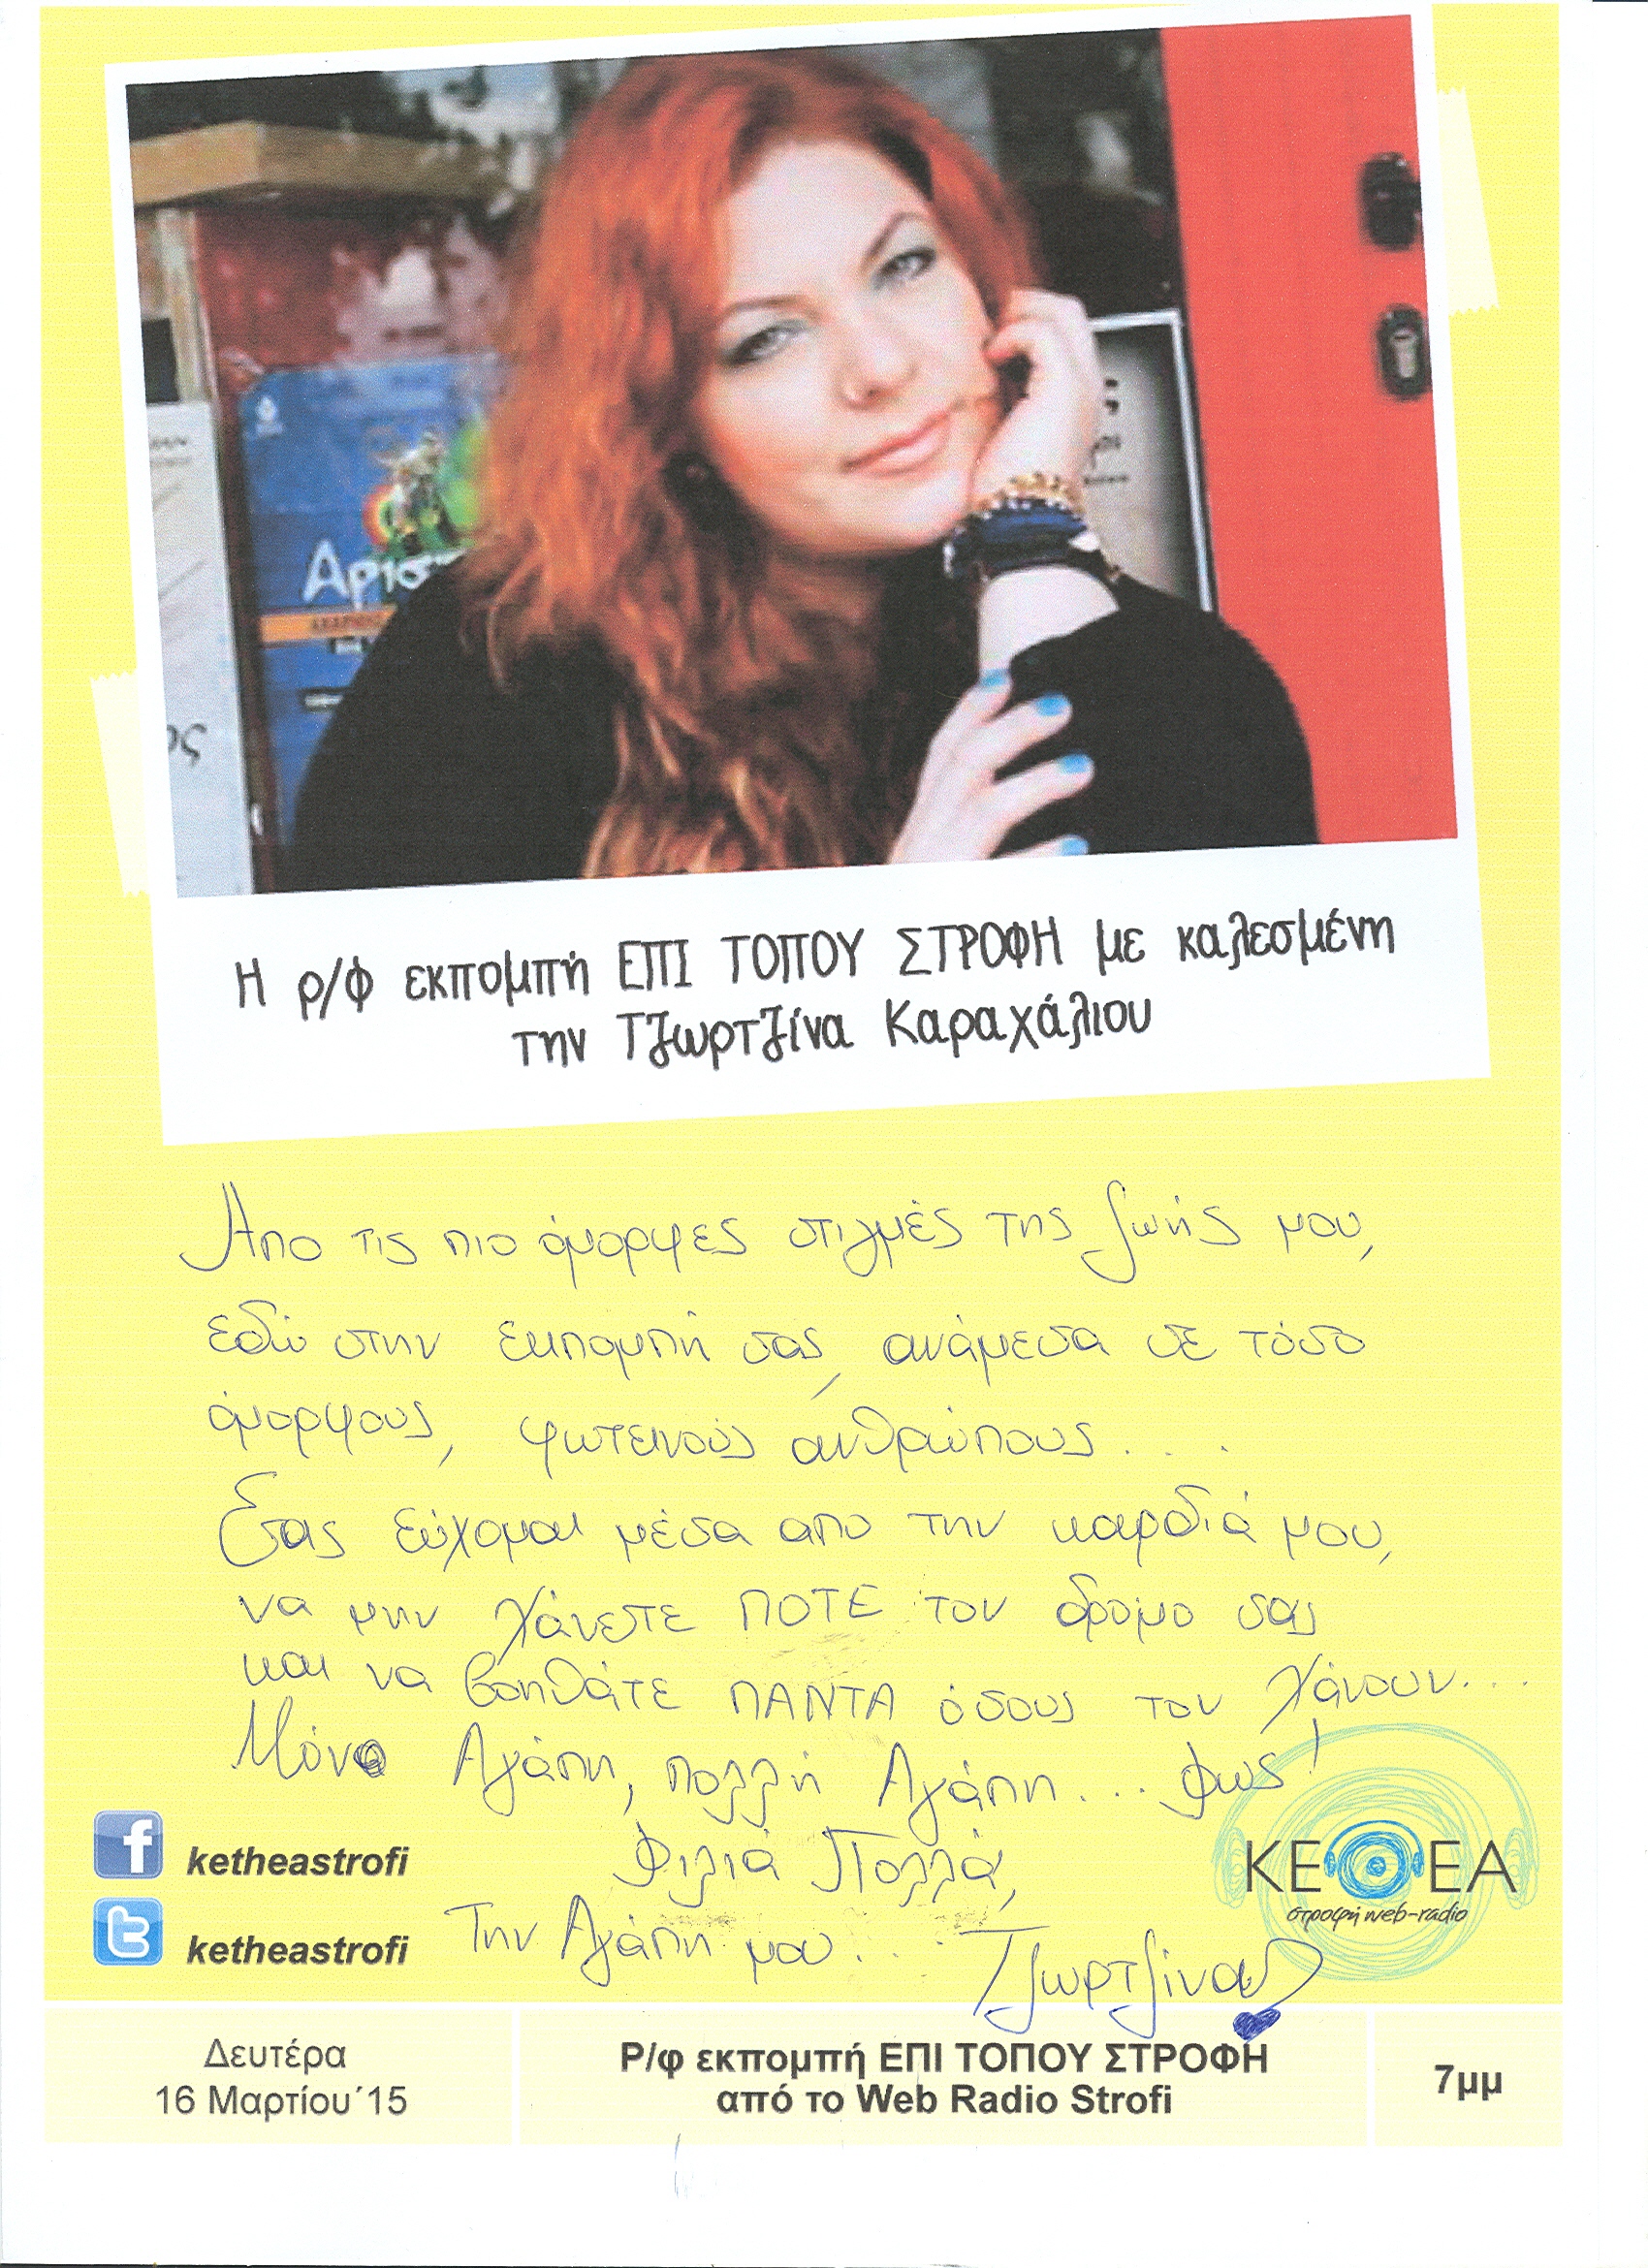 Αρισ
ος
Η ρ/φ εκπομπή ΕΠΙ ΤΟΠΟΥ ΣΤΡΟΦΗ με καλεσμένη
την Τζωρτζίνα Καραχάλιου
Απο τις πιο όμορφες στιγμές της ζωής μου,
εδώ στην εκπομπή σας, ανάμεσα σε τόσο
όμορφους, φωτεινούς ανθρώπους....
Σας εύχομαι μέσα απο την καρδιά μου,
να μην χάνετε ΠΟΤΕ τον δρόμο σας
και να βοηθάτε ΠΑΝΤΑ όσους τον χάνουν...
Μόνο Αγάπη, πολλή Αγάπη... Φως!
Φιλιά Πολλά,
Την Αγάπη μου...
Τζωρτζίνα
ketheastrofi
ketheastrofi
ΚΕΘΕΑ
στροφή web-radio
Δευτέρα
16 Μαρτίου΄15
Ρ/φ εκπομπή ΕΠΙ ΤΟΠΟΥ ΣΤΡΟΦΗ
από το Web Radio Strofi
7μμ